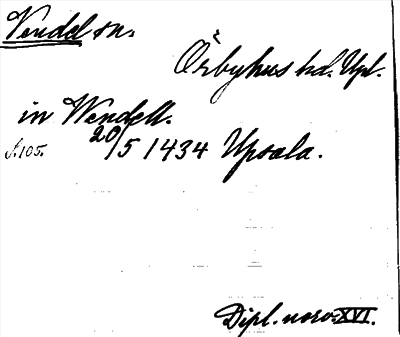 Vendel sn.
Örbyhus hd. Upl.
in Wendell.
s. 105. 20/5 1434 Upsala.
Dipl. norv. XVI.